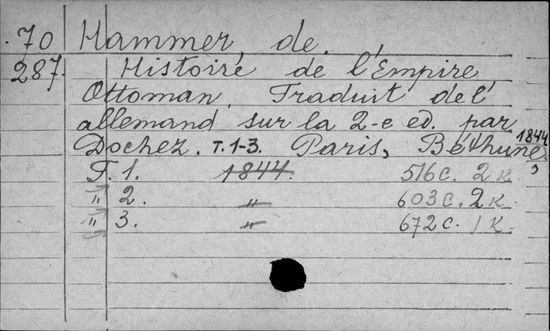 70 Hammer, de.
287. Histoire de l'Empire
Ottoman. Traduit de l'
allemand sur la 2-e ed. par
Dochez. T.1-3. Paris, Béthune, 1844
T. 1. 1844. 516 c. 2 к.
" 2. " 603 c. 2 к
" 3. " 672 c. 1 к